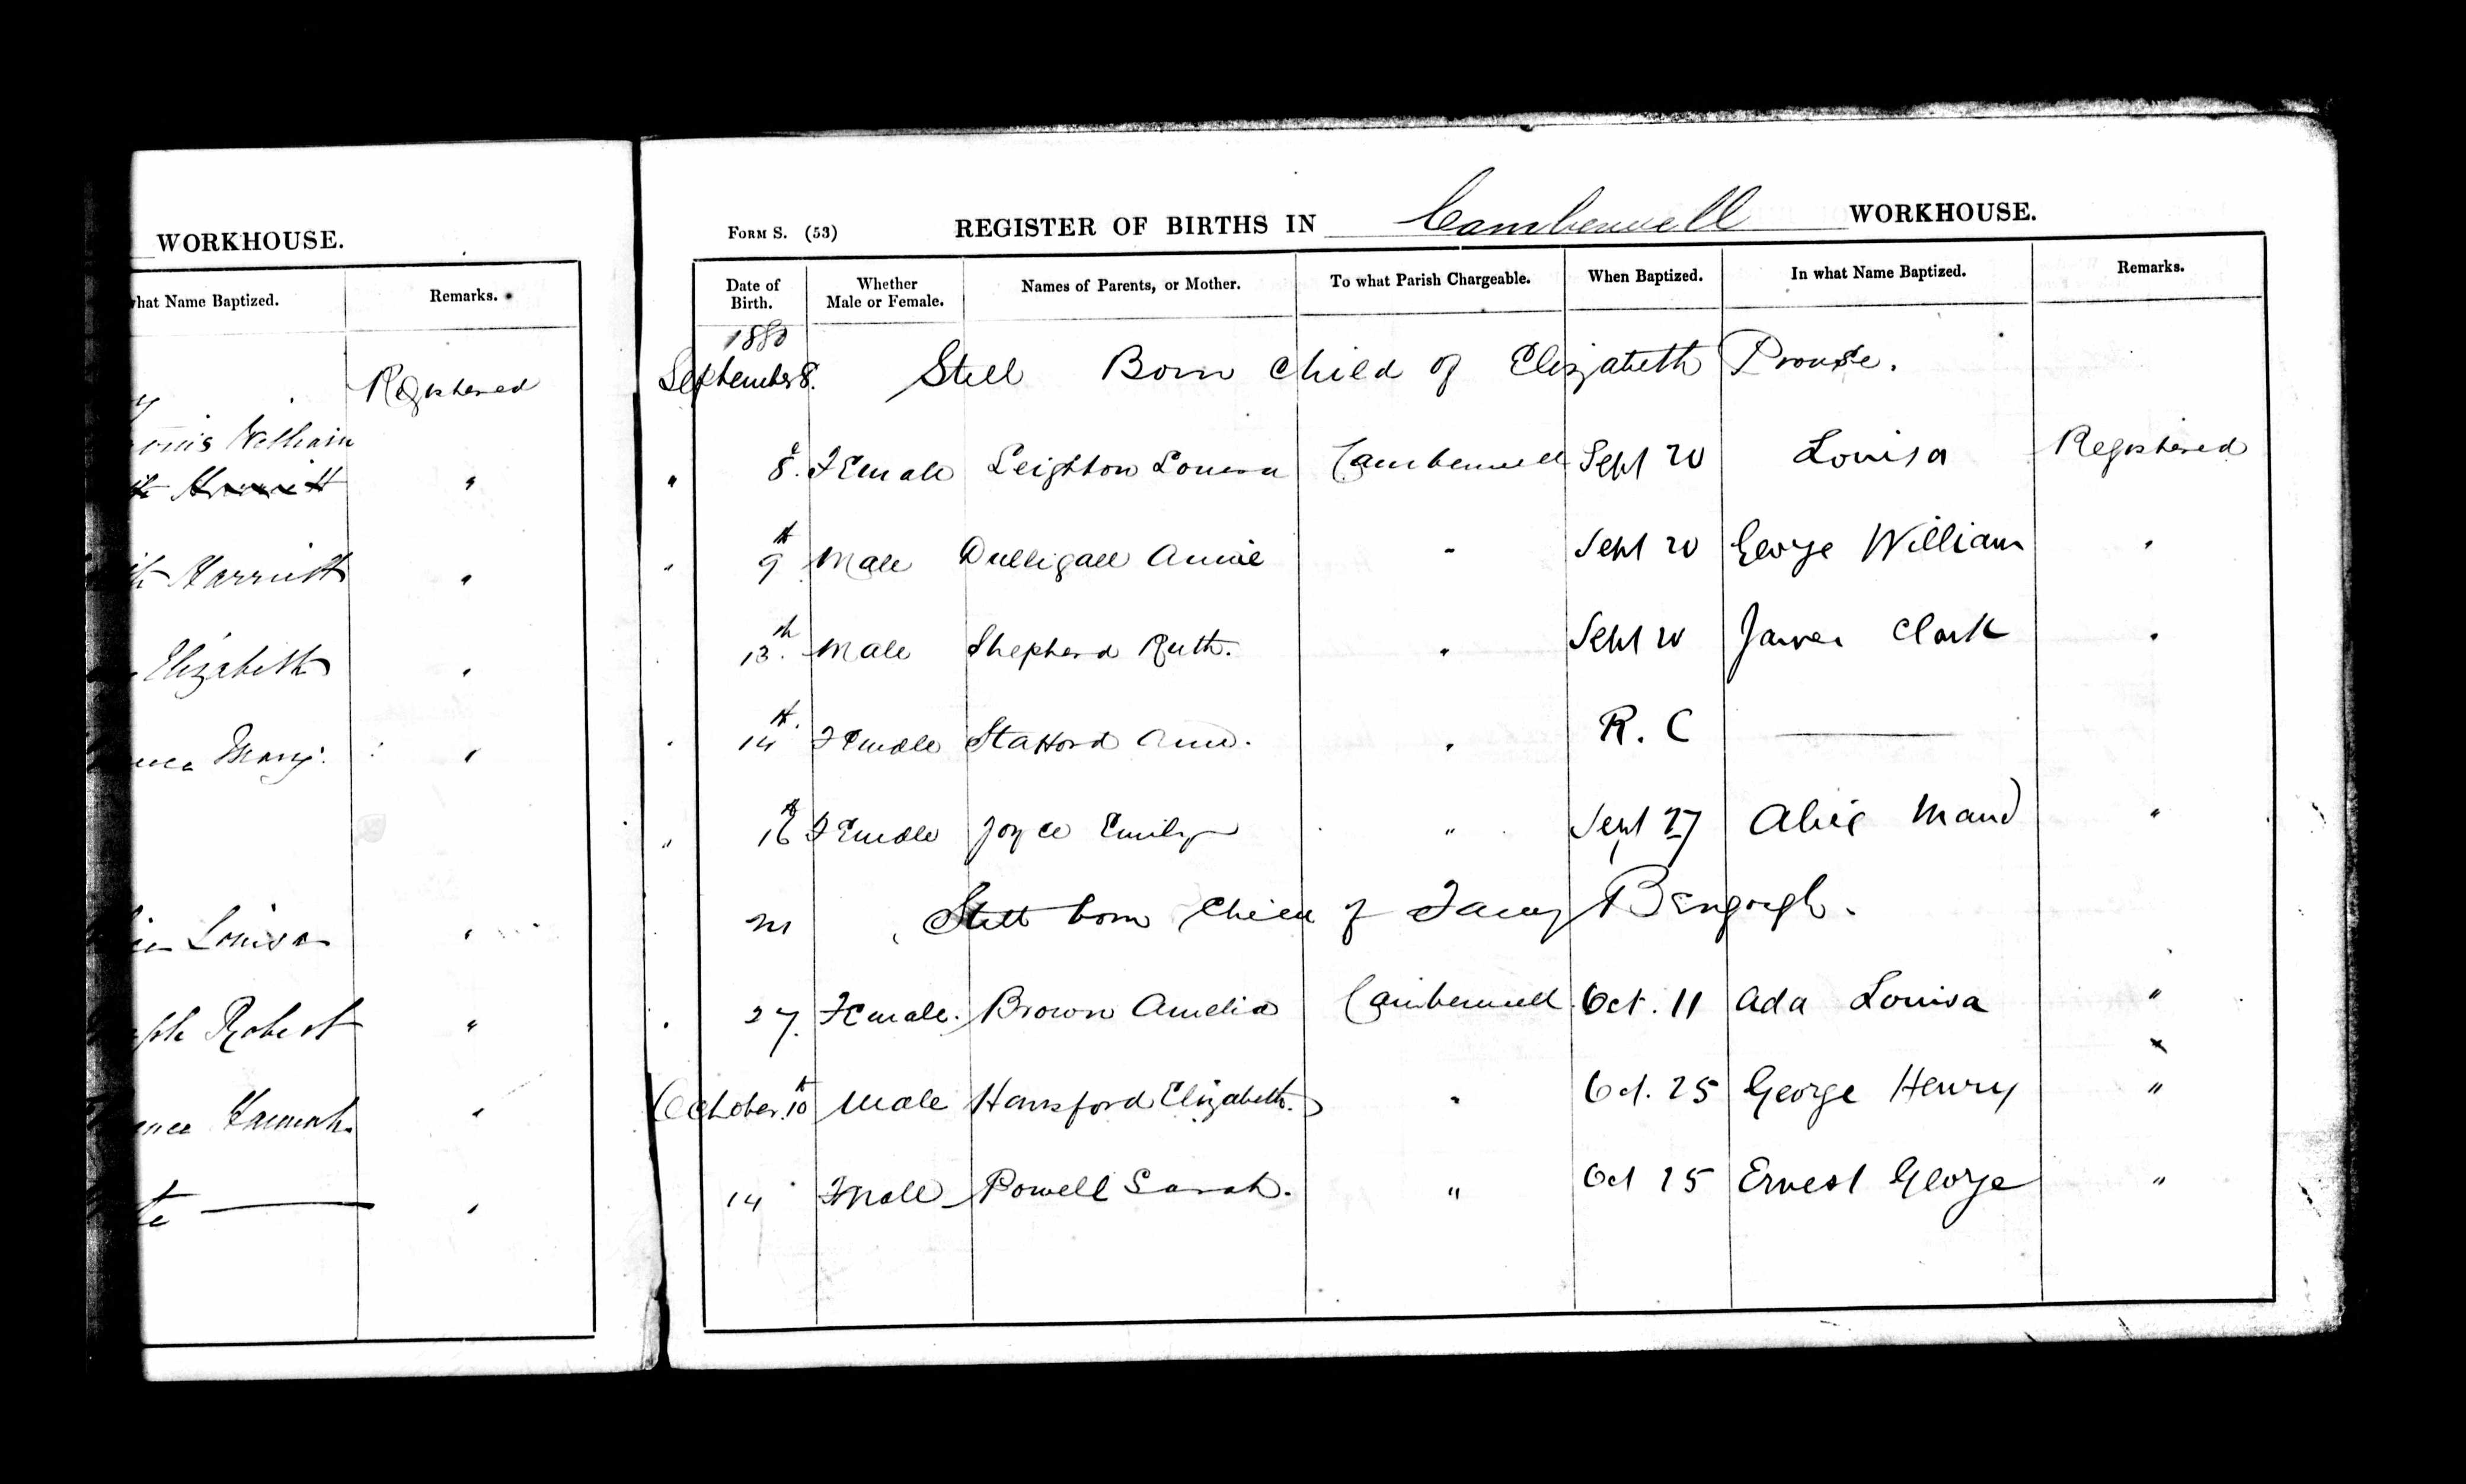 WORKHOUSE.
what Name Baptized. Remarks.
Registered
William
"
Harriett "
Elizabeth "
Mary. "
Louisa "
Robert "
Hannah. "
"
FORM S. (53) REGISTER OF BIRTHS IN Camberwell WORKHOUSE.
Date of Birth. Whether Male or Female. Names of Parents, or Mother. To what Parish Chargeable. When Baptized. In what Name Baptized. Remarks.
1880
September 8. Still Born Child of Elizabeth Prouse.
" 8. Female Leighton Louisa Camberwell Sept 20 Louisa Registered
" 9th Male Annie " Sept 20 George William "
13th Male Shepherd Ruth. " Sept 20 James Clark "
" 14th. Female Stafford " R. C —— 
" 16th Female Joyce Emily " Sept 27 Alice Maud "
21 Still born Child of Fanny
" 27. Female. Brown Amelia Camberwell Oct. 11 Ada Louisa "
October. 10th Male Hansford Elizabeth. " Oct. 25 George Henry "
14 Male Powell Sarah. " Oct 25 Ernest George "